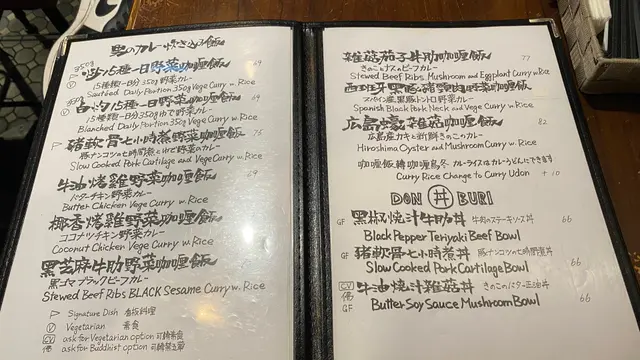 野のカレー炊き込み飯
350g
15種一日野菜咖喱飯 69
15種類一日分350g野菜カレー
Sautéed Daily Portion 350g Vege Curry w. Rice
350g
白灼15種一日野菜咖喱飯 69
15種類一日分350gゆで野菜カレー
Blanched Daily Portion 350g Vege Curry w. Rice
豬軟骨七小時煮野菜咖喱飯 75
豚ナンコツの七時間煮とゆで野菜のカレー
Slow Cooked Pork Cartilage and Vege Curry w. Rice
牛油烤雞野菜咖喱飯
バターチキン野菜カレー
Butter Chicken Vege Curry w. Rice
椰香烤雞野菜咖喱飯
ココナツチキン野菜カレー
Coconut Chicken Vege Curry w. Rice
黑芝麻牛肋野菜咖喱飯
黒ゴマブラックビーフカレー
Stewed Beef Ribs BLACK Sesame Curry w. Rice
Signature Dish 看板料理
V Vegetarian 素食
CV ask for Vegetarian option 可轉素食
佛 ask for Buddhist option 可轉走五辛
雜菇茄子牛肋咖喱飯 77
きのことナスのビーフカレー
Stewed Beef Ribs, Mushroom and Eggplant Curry w. Rice
西班牙黑豚豬頸肉野菜咖喱飯
スペイン産黒豚トントロ野菜カレー
Spanish Black Pork Neck and Vege Curry w. Rice
広島蠔雜菇咖喱飯 82
広島産カキと新鮮きのこのカレー
Hiroshima Oyster and Mushroom Curry w. Rice
咖喱飯轉咖喱烏冬 カレーライスはカレうどんにできます
Curry Rice Change to Curry Udon +10
DON 丼 BURI
GF 黑椒燒汁牛肋丼 牛肉のステーキソース丼 66
Black Pepper Teriyaki Beef Bowl
GF 豬軟骨七小時煮丼 豚ナンコツの七時間煮丼 66
Slow Cooked Pork Cartilage Bowl
CV 佛 GF 牛油燒汁雜菇丼 きのこのバター正油丼 66
Butter Soy Sauce Mushroom Bowl